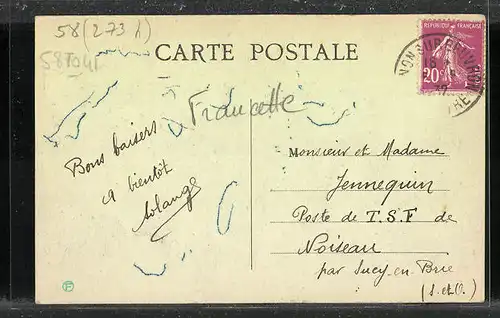 58 (273 h)
58 Tout
CARTE POSTALE
REPUBLIQUE FRANÇAISE
20
18
37
Francette
Bons baisers
a bientôt
Solange
Monsieur et Madame
Jennequin
Poste de T.S.F de
Noiseau
par Sucy-en-Brie
(S. et O.)